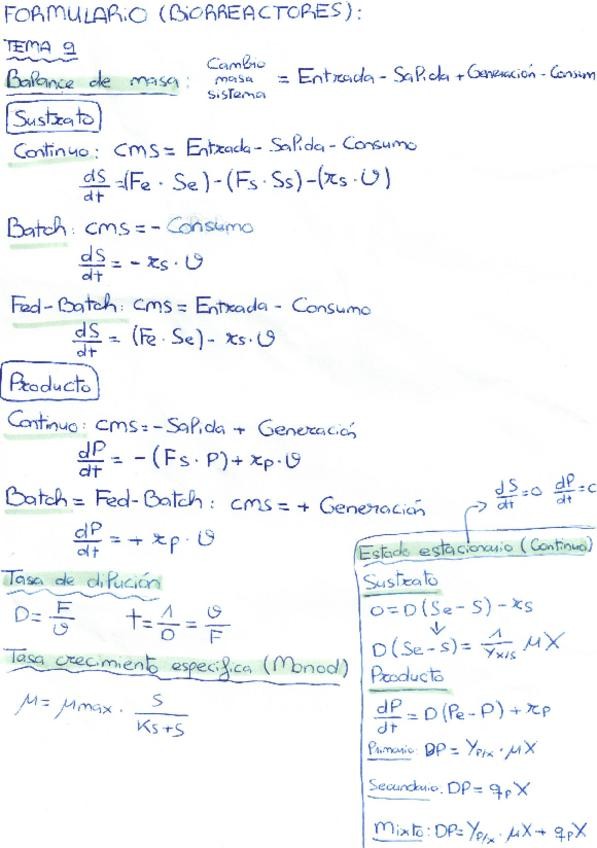 FORMULARIO (BIORREACTORES):
TEMA 9
Balance de masa: Cambio masa sistema = Entrada - Salida + Generación - Consum
Sustrato
Continuo: CMS = Entrada - Salida - Consumo
dS/dt = (Fe · Se) - (Fs · Ss) - (rs · V)
Batch: CMS = - Consumo
dS/dt = - rs · V
Fed-Batch: CMS = Entrada - Consumo
dS/dt = (Fe · Se) - rs · V
Producto
Continuo: CMS = - Salida + Generación
dP/dt = - (Fs · P) + rp · V
Batch = Fed-Batch: CMS = + Generación
dP/dt = + rp · V
Tasa de dilución
D = F/V t = 1/D = V/F
Tasa crecimiento especifica (Monod)
μ = μmax · S/(Ks+S)
dS/dt = 0 dP/dt = 0
Estado estacionario (Continuo)
Sustrato
0 = D(Se - S) - rs
D(Se - S) = 1/Yx/s μX
Producto
dP/dt = D(Pe - P) + rp
Primario: DP = Yp/x · μX
Secundario: DP = qpX
Mixto: DP = Yp/x · μX + qpX